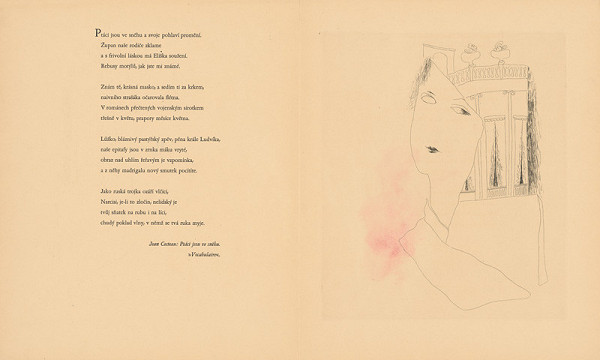 Ptáci jsou ve sněhu a svoje pohlaví promění.
Župan naše rodiče zklame
a s frivolní láskou má Eliška souření.
Rebusy motýlů, jak jste mi známé.
Znám tě, krásná masko, a sedím ti za krkem,
naivního strašáka očarovala flétna.
V románech přečtených vojenským sirotkem
třešně v květu, prapory měsíce května.
Lůžko, bláznivý pastýřský zpěv, pěna krále Ludvíka,
naše epitafy jsou v zinku mléku ryté,
obraz nad uhlím žeřavým je vzpomínka,
a z něhy madrigalu nový smutek pocítíte.
Jako ruská trojka vozíř vlčici,
Narcise, je-li to zločin, nelidský je
tvůj sňatek na rubu i na líci,
chudý poklad vlny, v němž se tvá ruka myje.
Jean Cocteau: Ptáci jsou ve sněhu.
»Vocabulaire«.